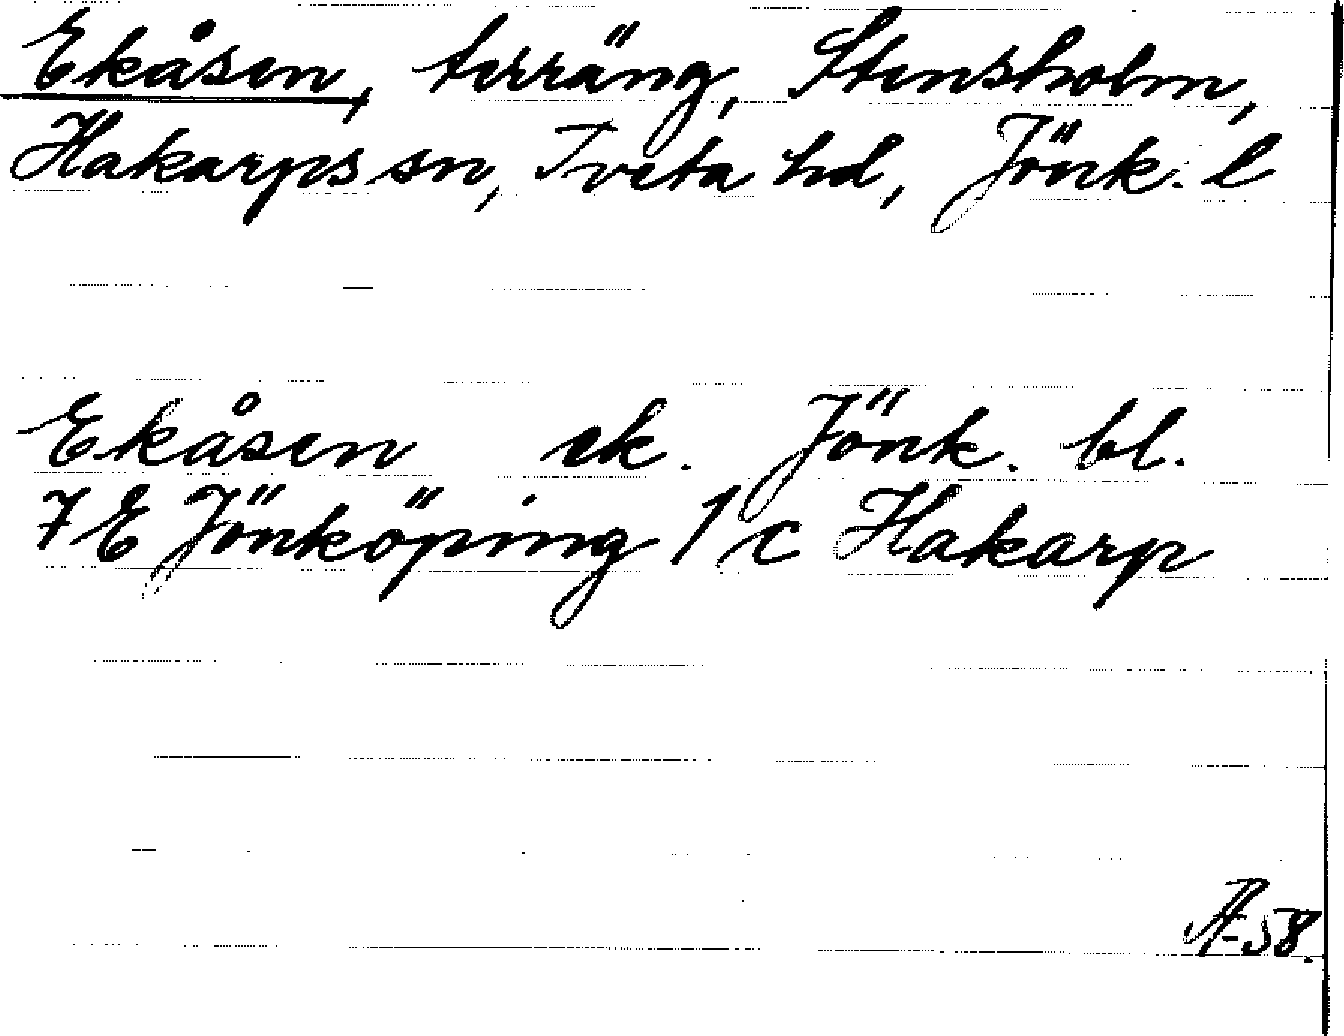 Ekåsen, terräng, Stensholm,
Hakarps sn, Tveta hd, Jönk. l
Ekåsen ek. Jönk. bl.
7E Jönköping 1c Hakarp
58.